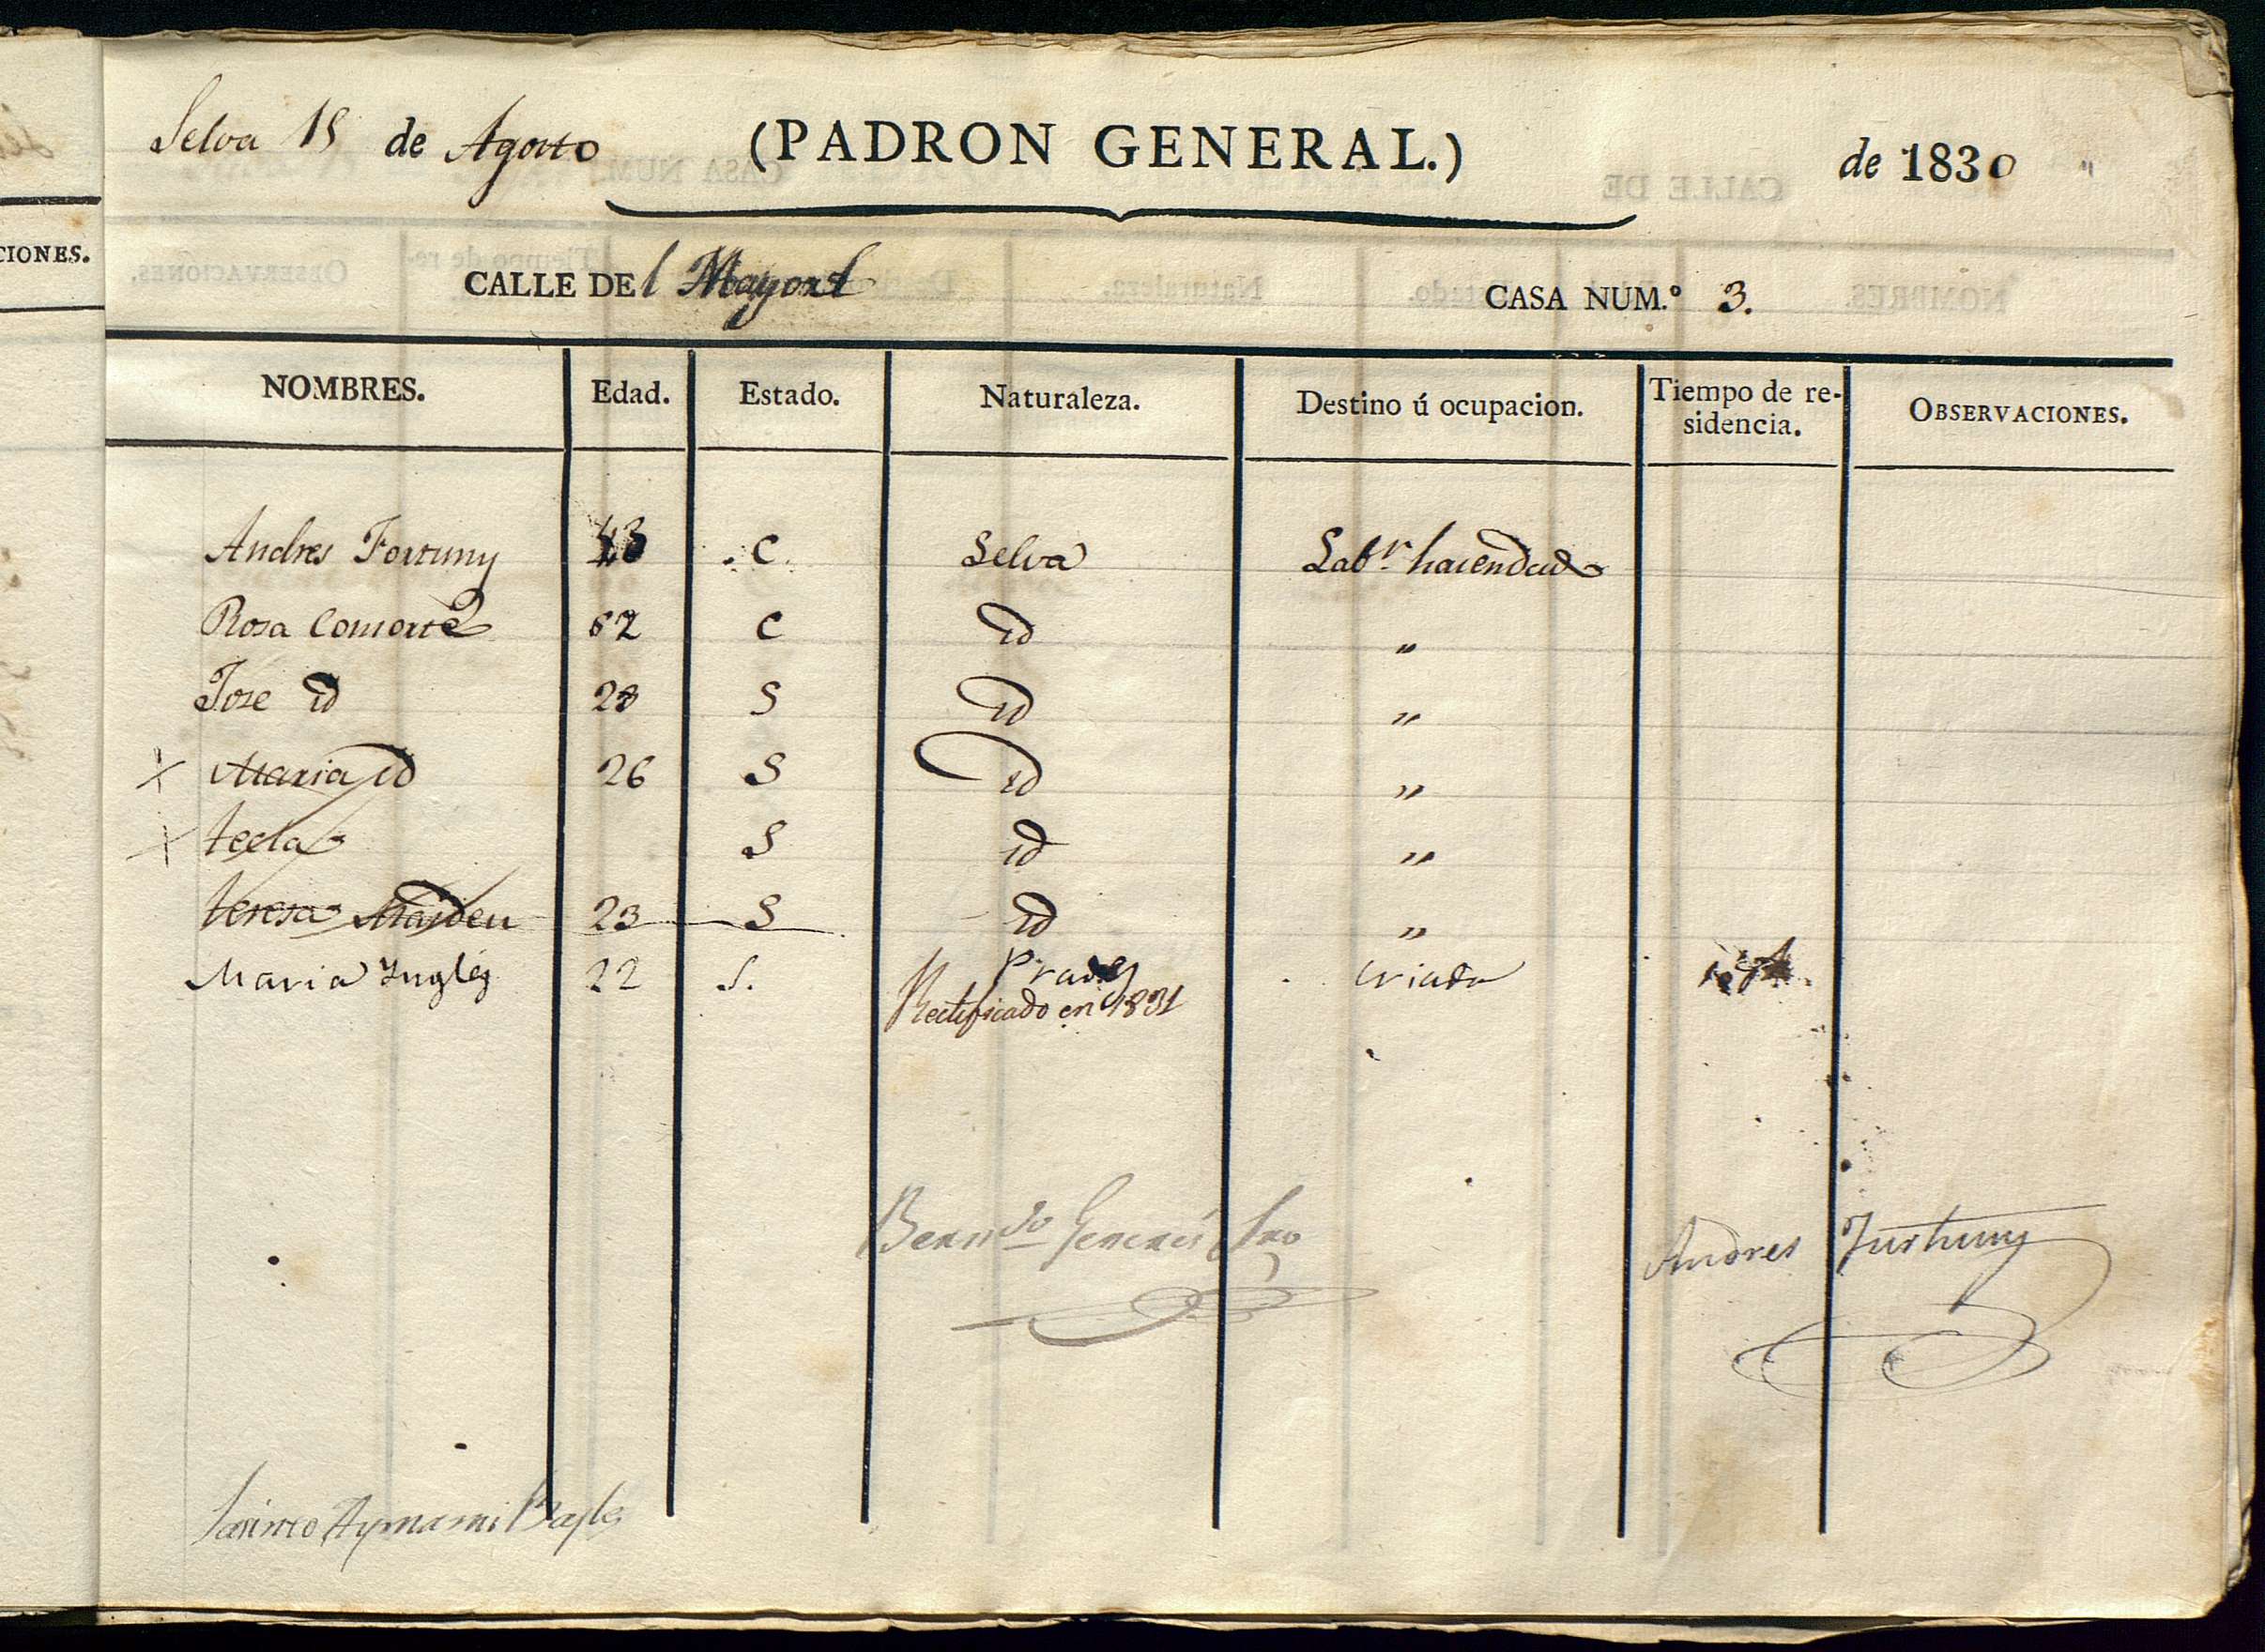 CIONES.
Selva 15 de Agosto (PADRON GENERAL.) de 1830
CALLE DEl Mayor CASA NUM.º 3.
NOMBRES. Edad. Estado. Naturaleza. Destino ú ocupacion. Tiempo de re- OBSERVACIONES.
sidencia.
Andres Fortuny C. Selva Labr. hacendado
Rosa Consorte 62 C id "
Jose id S id "
Maria id 26 S id "
tecla S id "
teresa 23 S id "
Maria Inglés 22 S. Prades criada
Rectificado en 1831
Andres Furtuny
Aymami Bayle